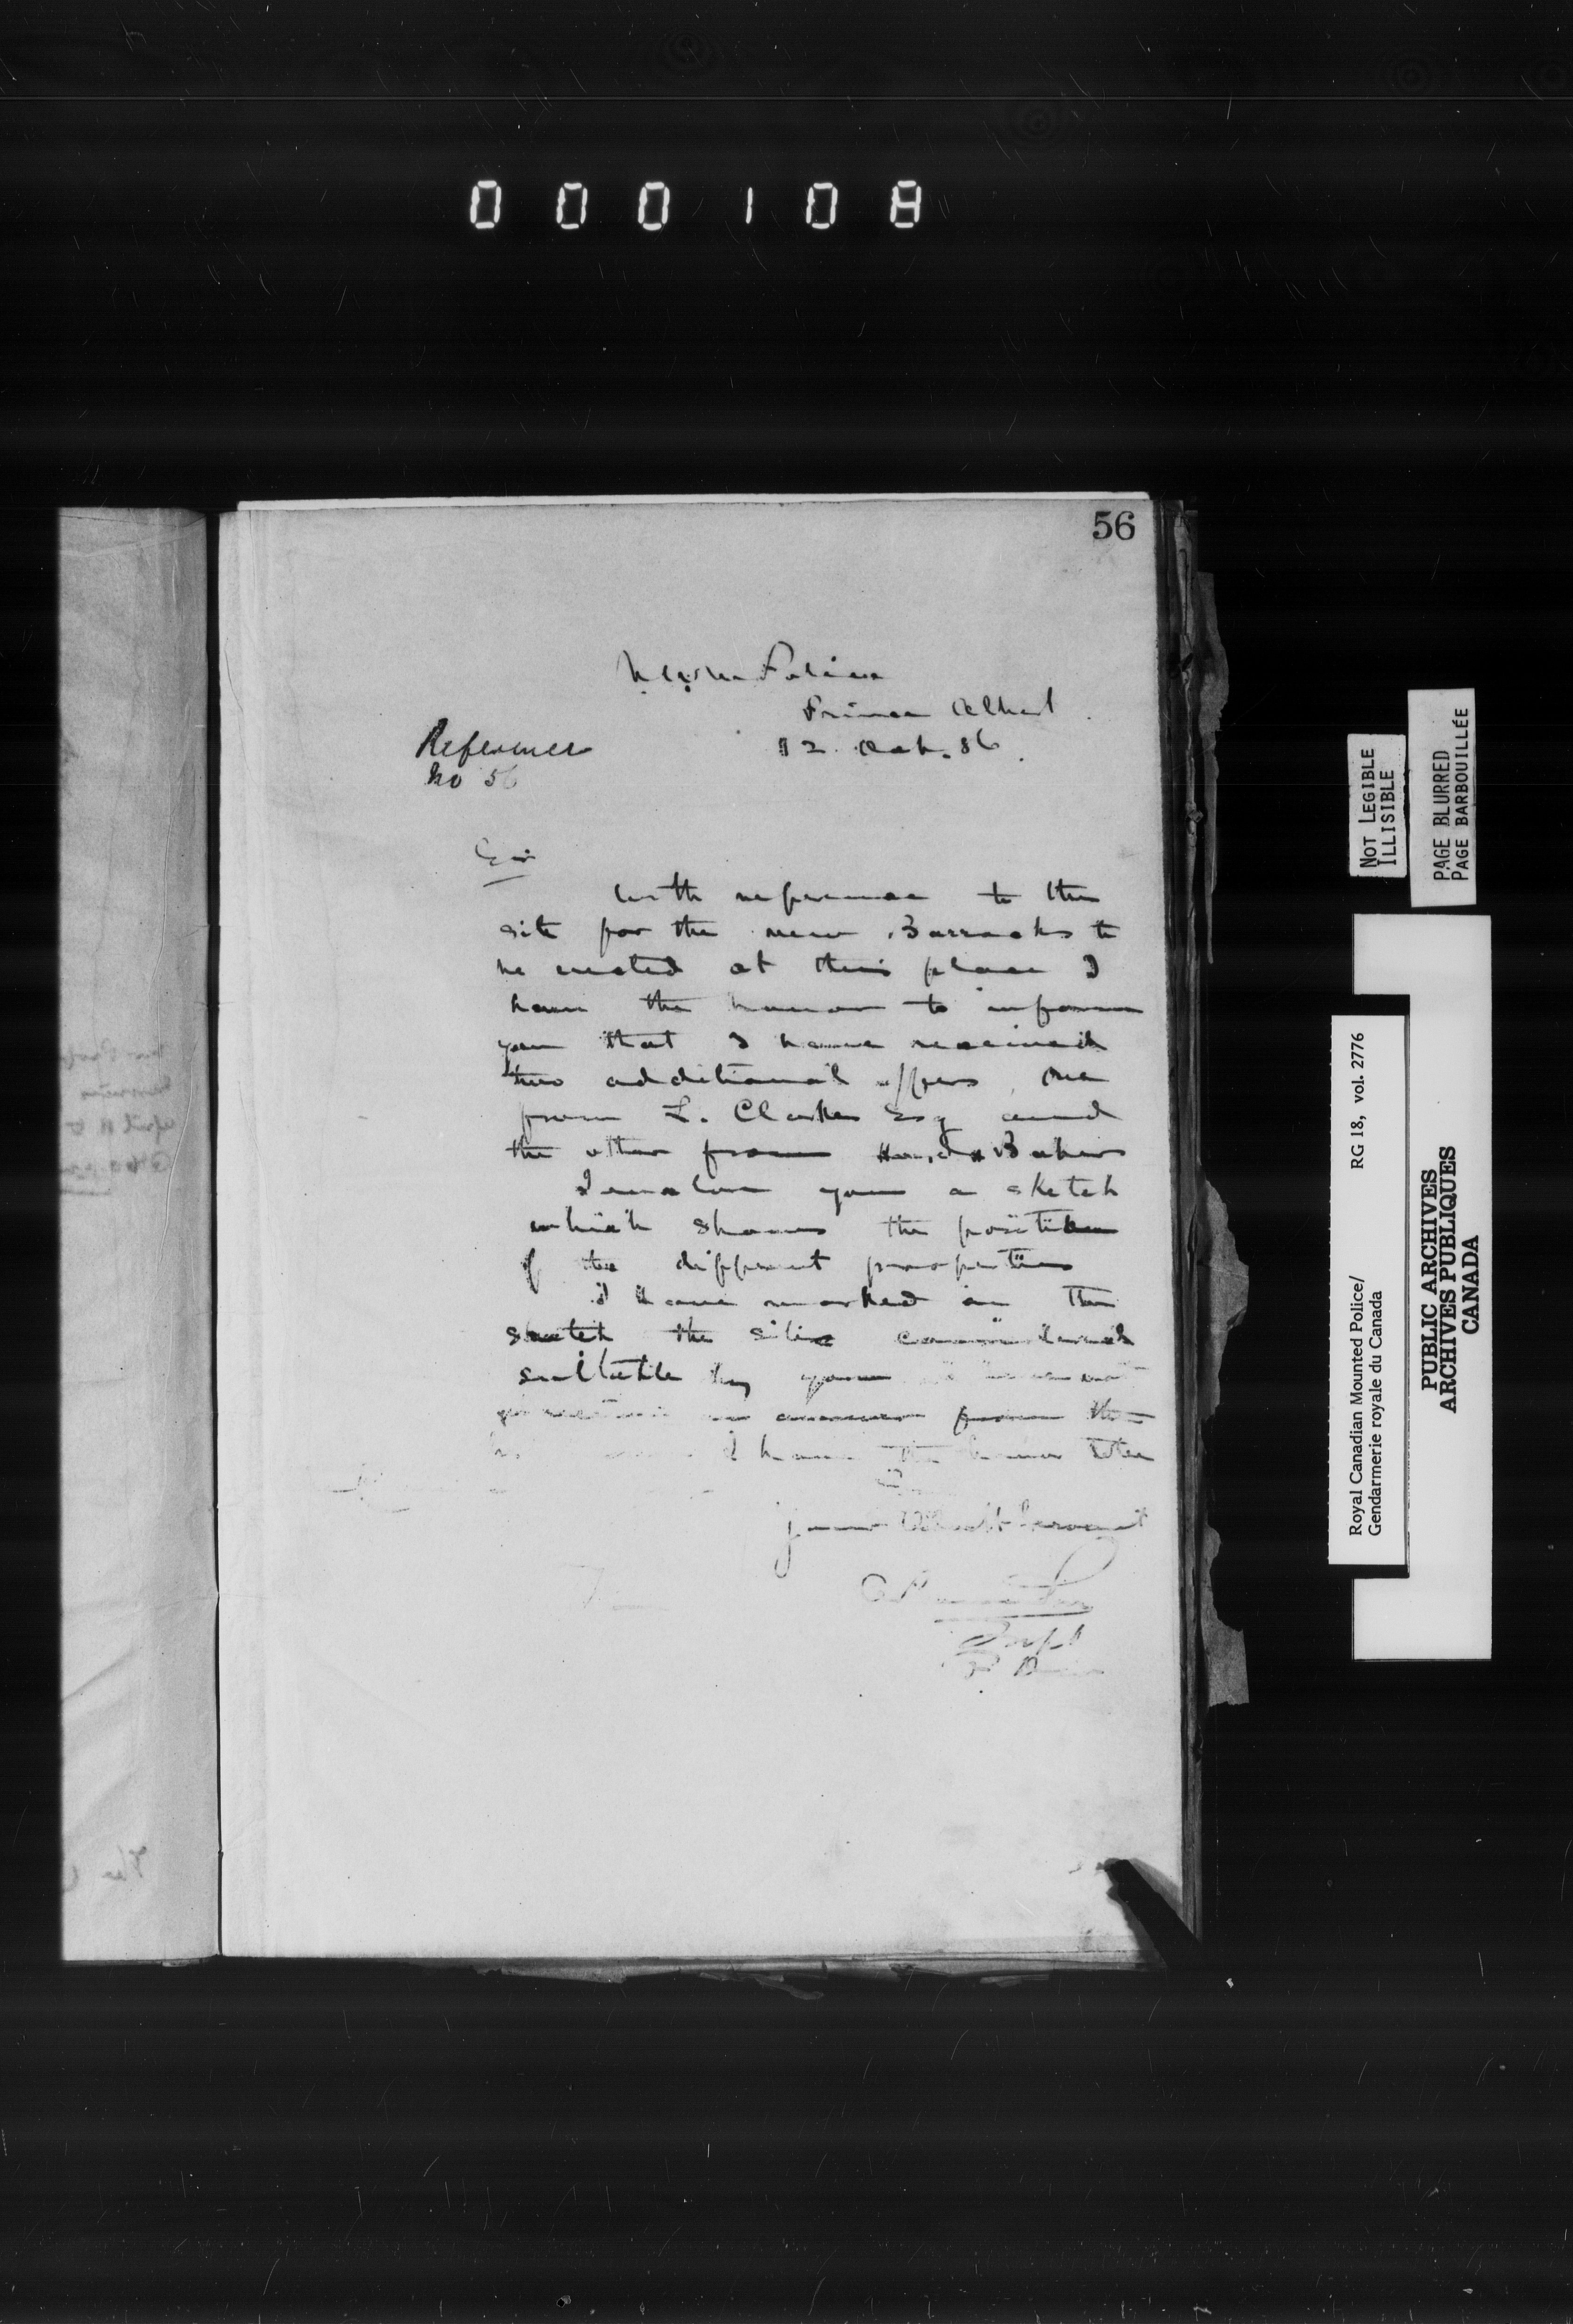 000108
56
N.W.M. Police
Prince Albert
Reference
12 Oct. 86
No 56
Sir
With reference to the
site for the new Barracks to
be erected at this place I
have the honor to inform
you that I have received
two additional offers, one
from L. Clarke Esq and
the other from Baker
I enclose you a sketch
which shows the position
of the different properties
I have marked on the
sketch the sites considered
suitable by you
answer from the
I have the honor to be
Sir
Your Obedt Servant
Supt
NOT LEGIBLE
ILLISIBLE
PAGE BLURRED
PAGE BARBOUILLÉE
Royal Canadian Mounted Police/ RG 18, vol. 2776
Gendarmerie royale du Canada
PUBLIC ARCHIVES
ARCHIVES PUBLIQUES
CANADA